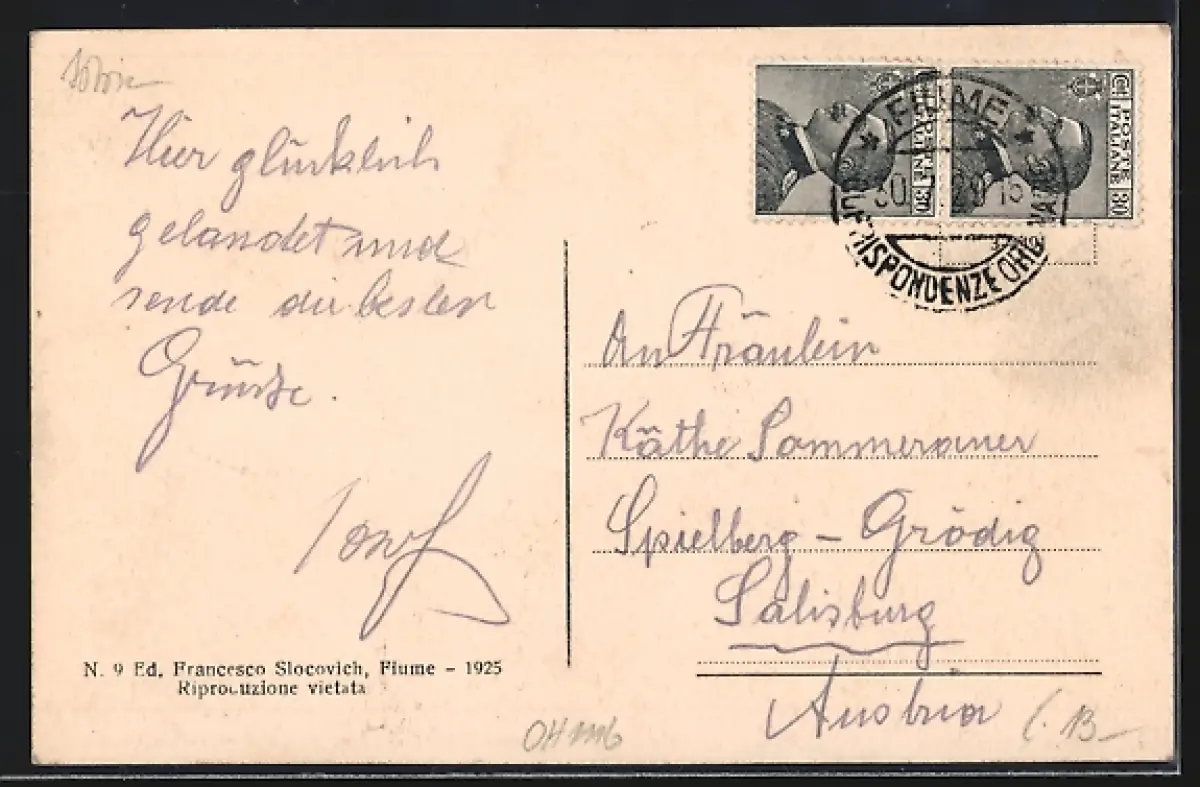 Hier glücklich
gelandet und
sende die besten
Grüsse.
Josef
N. 9 Ed. Francesco Slocovich, Fiume - 1925
Riproduzione vietata
POSTE
ITALIANE
30
POSTE
ITALIANE
30
FIUME
CORRISPONDENZE ORDINARIE
An Fräulein
Käthe Sommerauer
Spielberg - Grödig
Salisburg
Austria